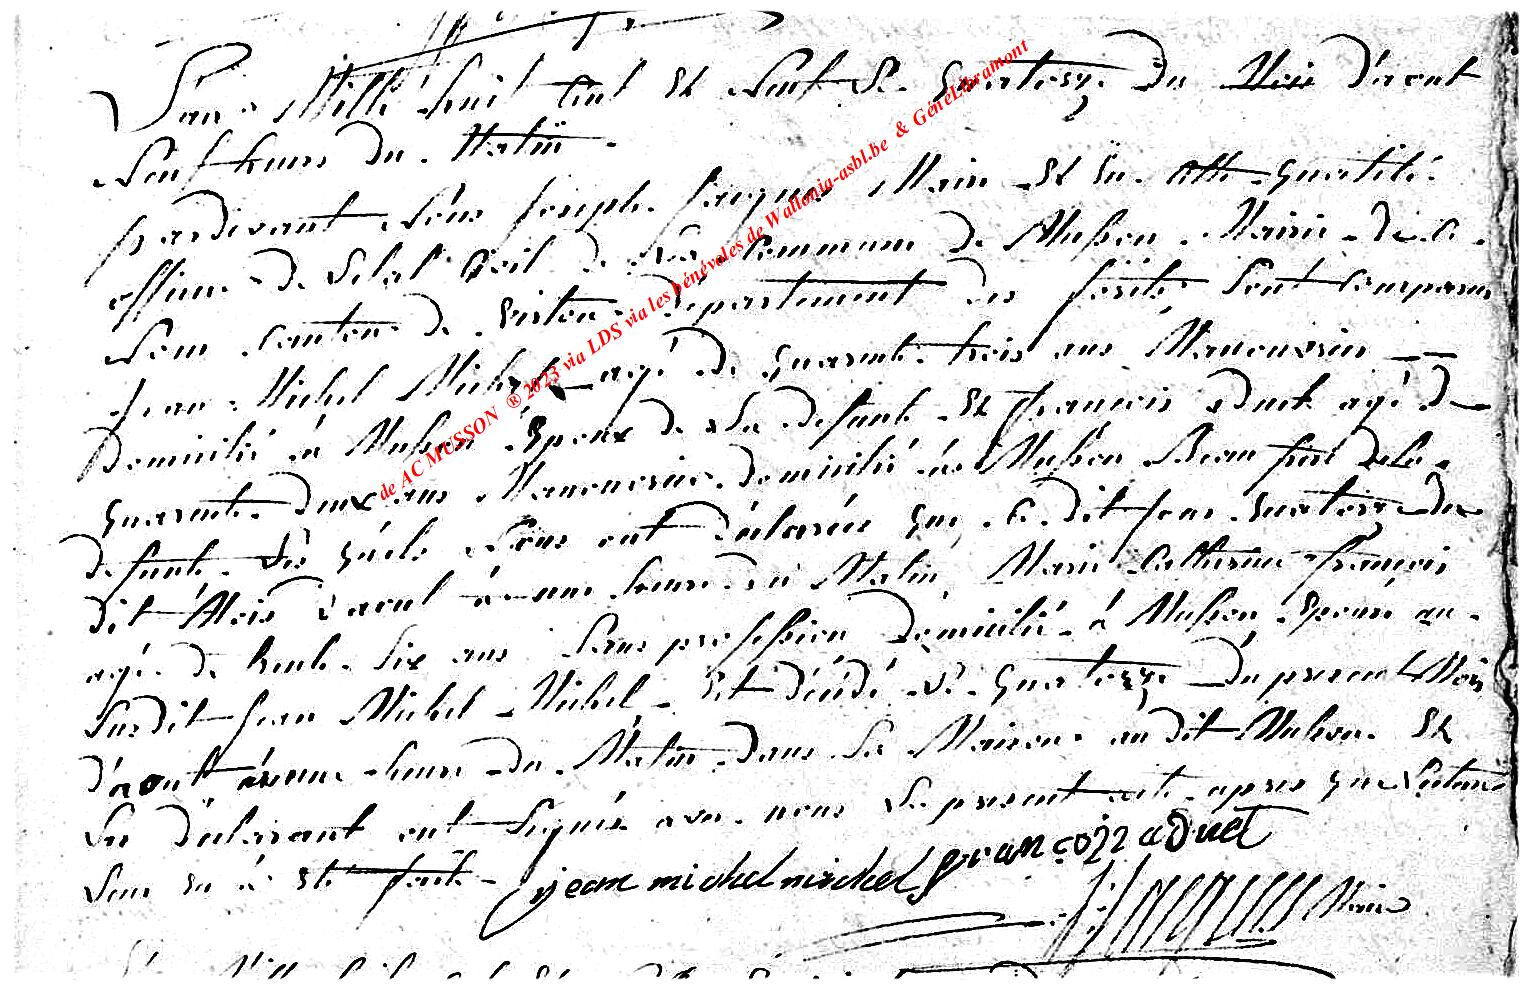 L'an Mille huit Cent Et Neuf Le Quatorze du Mois D'aout
Neuf heures du Matin
pardevant Nous joseph jacques Maire Et En Cette Qualité
officier De Letat Civil De La Commune De Musson Mairie de ce
Nom Canton De Virton Département des forêts Sont Comparus
jean Michel Michel agé De Quarente trois ans Manouvrier
Domicilié à Musson Epoux De La defunte Et françois aduet agé De
Quarente deux ans Manouvrier domicilié à Musson Beau frere de la
defunte Les Quels Nous ont Déclarée que Ce dit jour Quatorze du
dit Mois D'aout à une heure du Matin Marie Catherine françois
agé De trente Six ans Sans profession Domicilié à Musson Epouse au
Susdit jean Michel Michel Est Décédé Le Quatorze Du present Mois
D'aout à une heure du Matin dans Sa Maison au dit Musson Et
Les Déclarant ont Signés avec nous Le present acte apres que Lecture
Leur En à Eté faite
jean michel michel françois aduet
Maire
de AC MUSSON ® 2023 via LDS via les bénévoles de Wallonia-asbl.be & GénéLibramont